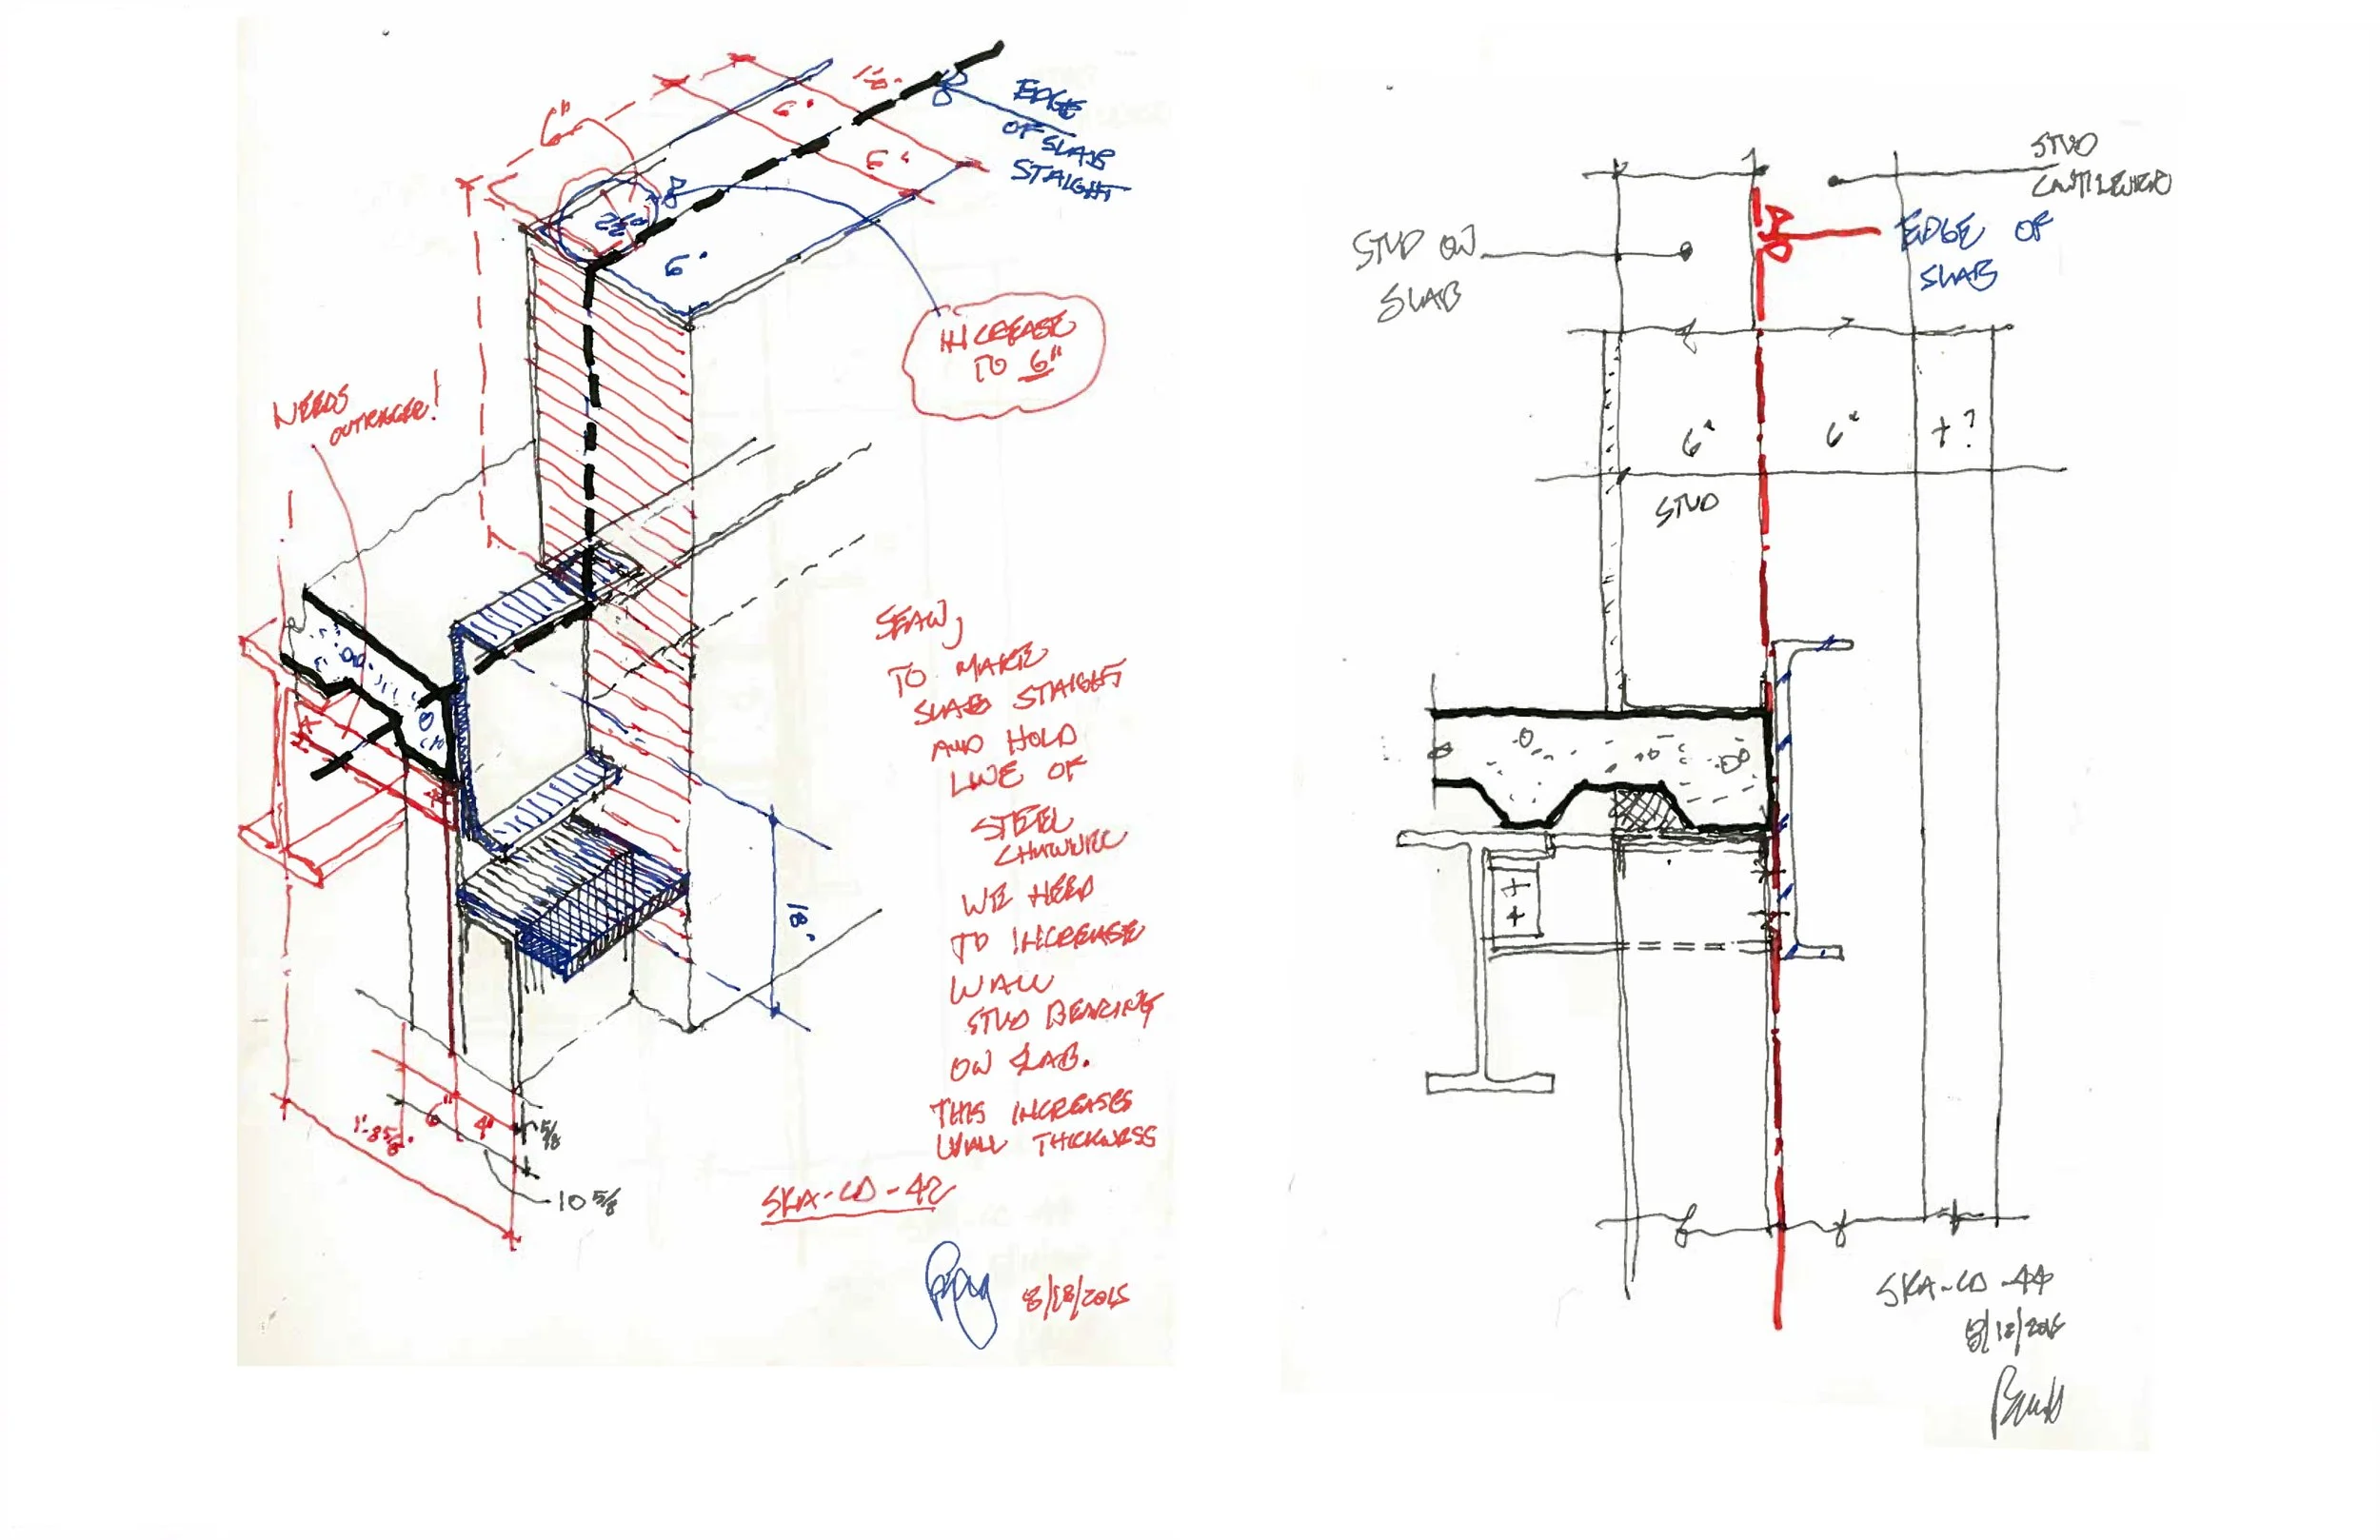 6"
1'-0"
6"
6"
6"
EDGE
OF SLAB
STAIGHT
INCREASE
TO 6"
NEEDS
OUTRIGGER!
SEAN,
TO MAKE
SLAB STAIGHT
AND HOLD
LINE OF
STEEL
CHANNEL
WE NEED
TO INCREASE
WALL
STUD BEARING
ON SLAB.
THIS INCREASES
WALL THICKNESS
18"
1'-8 5/8"
6"
4"
5/8
10 5/8
SKA-CD-42
8/18/2015
STUD
CANTILEVERED
STUD ON
SLAB
EDGE OF
SLAB
6"
6"
+?
STUD
SKA-CD-44
8/18/2015